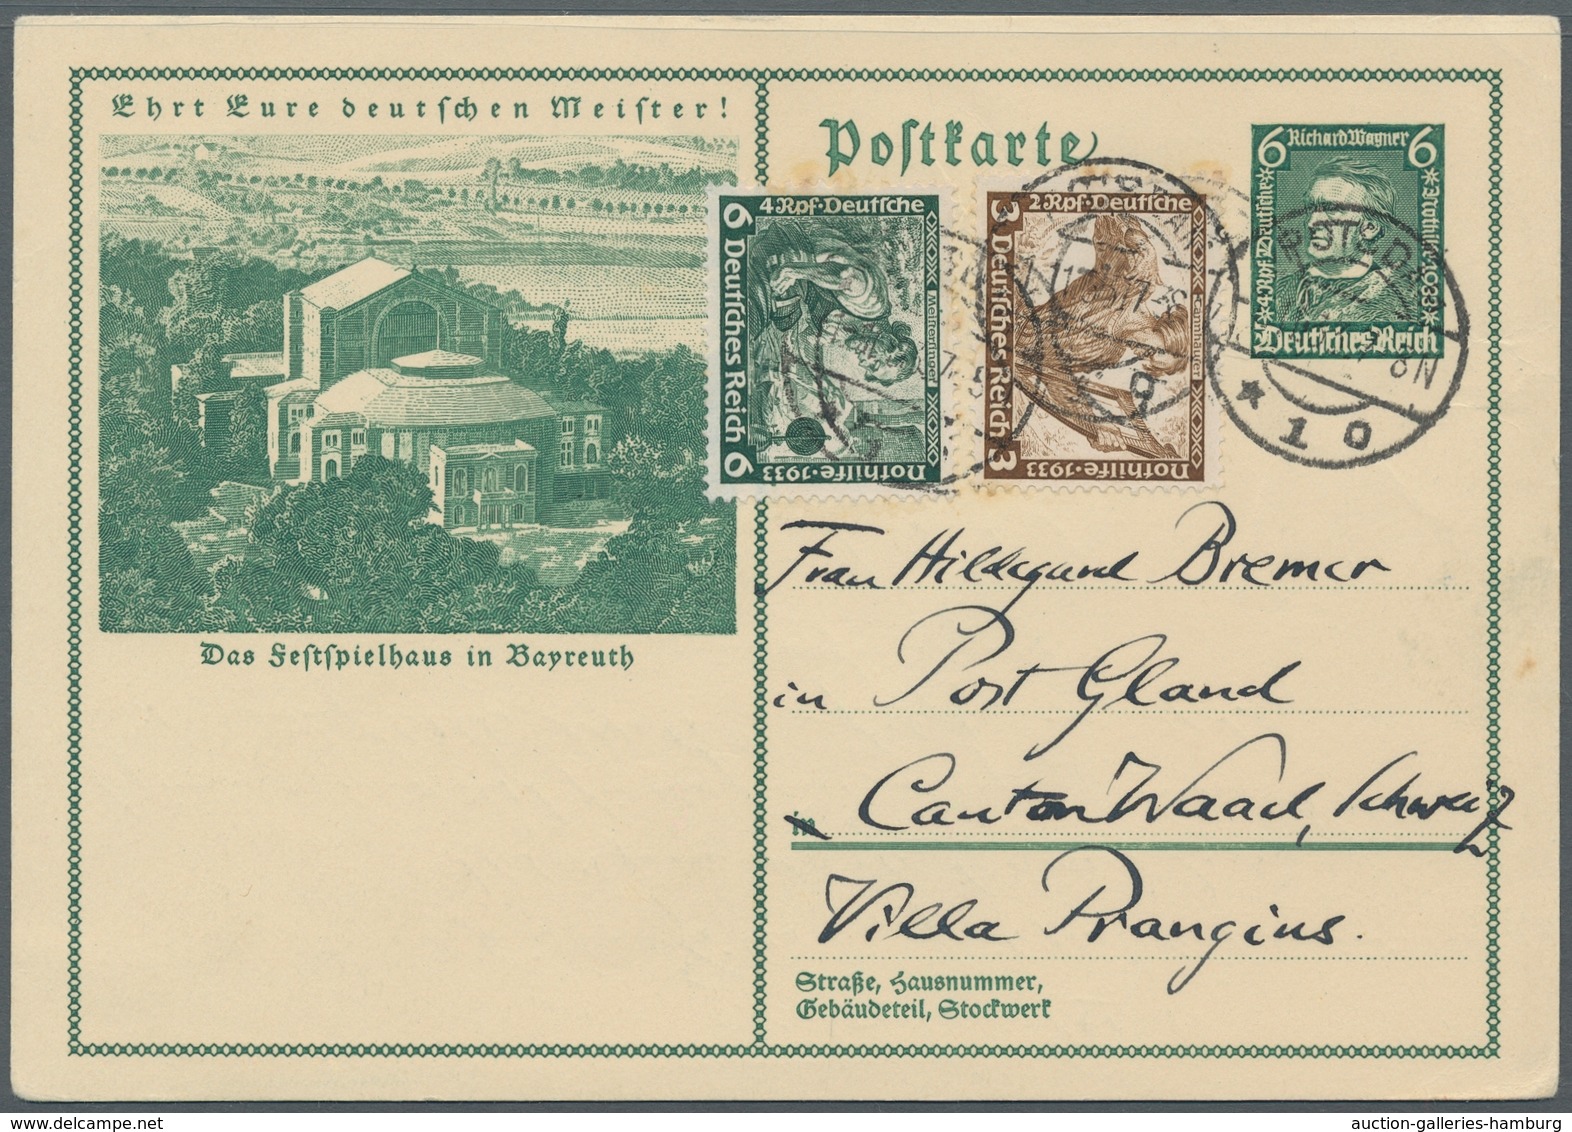 Ehrt Eure deutschen Meister!
Das Festspielhaus in Bayreuth
Postkarte
6 Richard Wagner 6
4 Rpf Deutsche
Nothilfe 1933
Deutsches Reich
6 Deutsches Reich 6
4 Rpf·Deutsche
Meistersinger
Nothilfe·1933
3 Deutsches Reich 3
2 Rpf·Deutsche
Tannhäuser
Nothilfe·1933
8N
* 10
Frau Hildegund Bremer
in Post Gland
in Canton Waad, Schweiz
Villa Prangins.
Straße, Hausnummer,
Gebäudeteil, Stockwerk
auction-galleries-hamburg